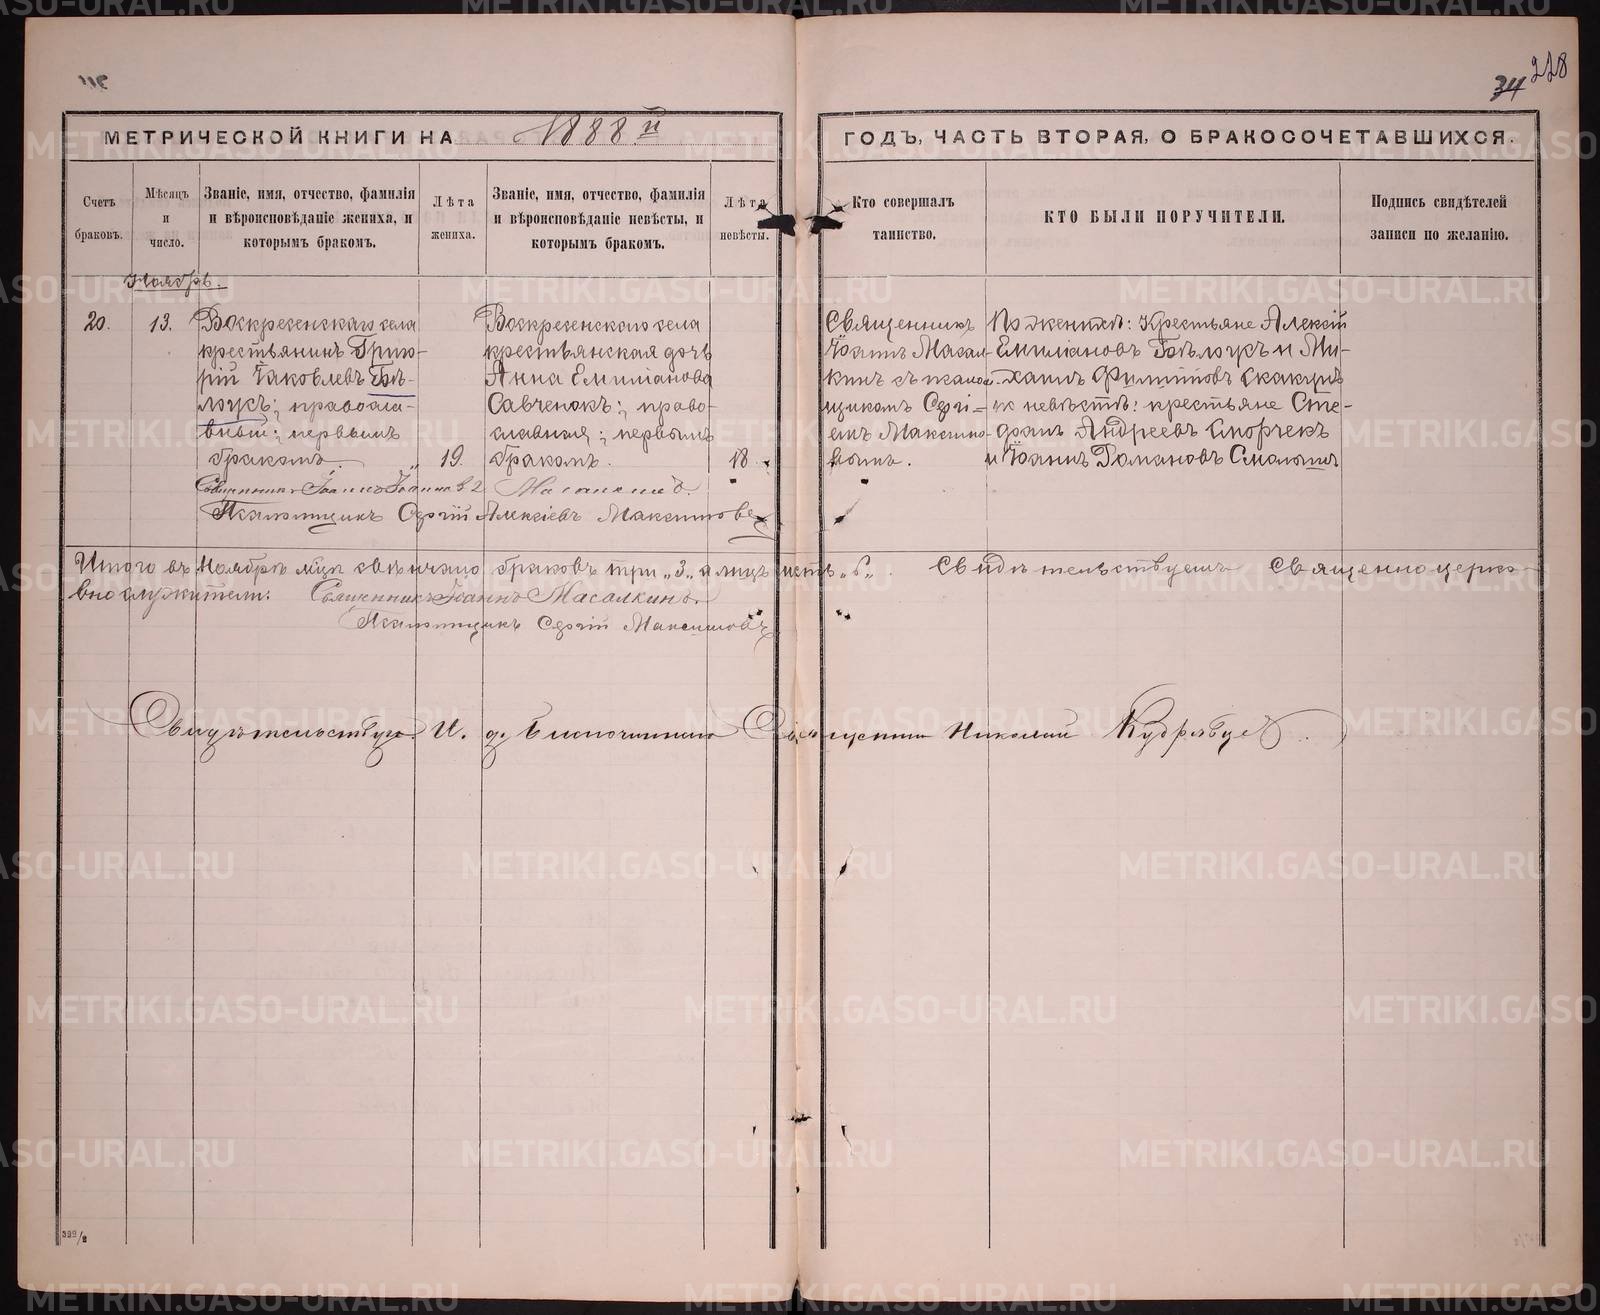 228
34
МЕТРИЧЕСКОЙ КНИГИ НА 1888й
ГОДЪ, ЧАСТЬ ВТОРАЯ, О БРАКОСОЧЕТАВШИХСЯ.
Счетъ браковъ.
Мѣсяцъ и число.
Званіе, имя, отчество, фамилія
и вѣроисповѣданіе жениха, и
которымъ бракомъ.
Лѣта жениха.
Званіе, имя, отчество, фамилія
и вѣроисповѣданіе невѣсты, и
которымъ бракомъ.
Лѣта невѣсты.
Кто совершалъ
таинство.
КТО БЫЛИ ПОРУЧИТЕЛИ.
Подпись свидѣтелей
записи по желанію.
Ноябрь.
20.
13.
Воскресенскаго села
крестьянинъ Григо-
рій Іаковлевъ Бѣ-
локъ; православ-
ный; первымъ
бракомъ.
19.
Воскресенскаго села
крестьянская дочь
Анна Емиліанова
Савченокъ; право-
славная; первымъ
бракомъ.
18.
Священникъ
Іоаннъ Масал-
кинъ съ псалом-
щикомъ Сергі-
емъ Максимо-
вымъ.
По женихѣ: Крестьяне Алексій
Емиліановъ Бѣлокъ и Ми-
хаилъ Филипповъ Скакунъ
по невѣстѣ: крестьяне Сте-
фанъ Андреевъ Сморчекъ
и Іоаннъ Романовъ
Священникъ Іоаннъ Іоанновъ Масалкинъ.
Псаломщикъ Сергій Алексіевъ Максимовъ
Итого въ Ноябрѣ мѣсц повѣнчано браковъ три „3„ а лицъ шесть „6„. Свидѣтельствуемъ Священноцерко-
внослужители: Священникъ Іоаннъ Масалкинъ.
Псаломщикъ Сергій Максимовъ
Свидѣтельствую. И. д. Благочиннаго Священникъ Николай Кудрявцевъ.
399/2
METRIKI.GASO-URAL.RU